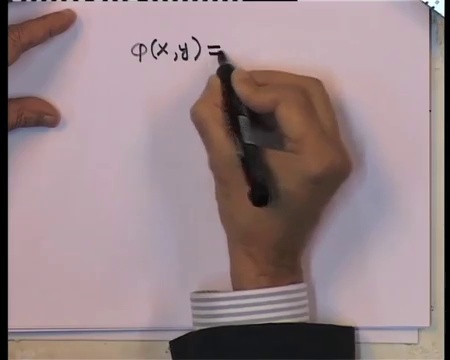 φ(x,y) =